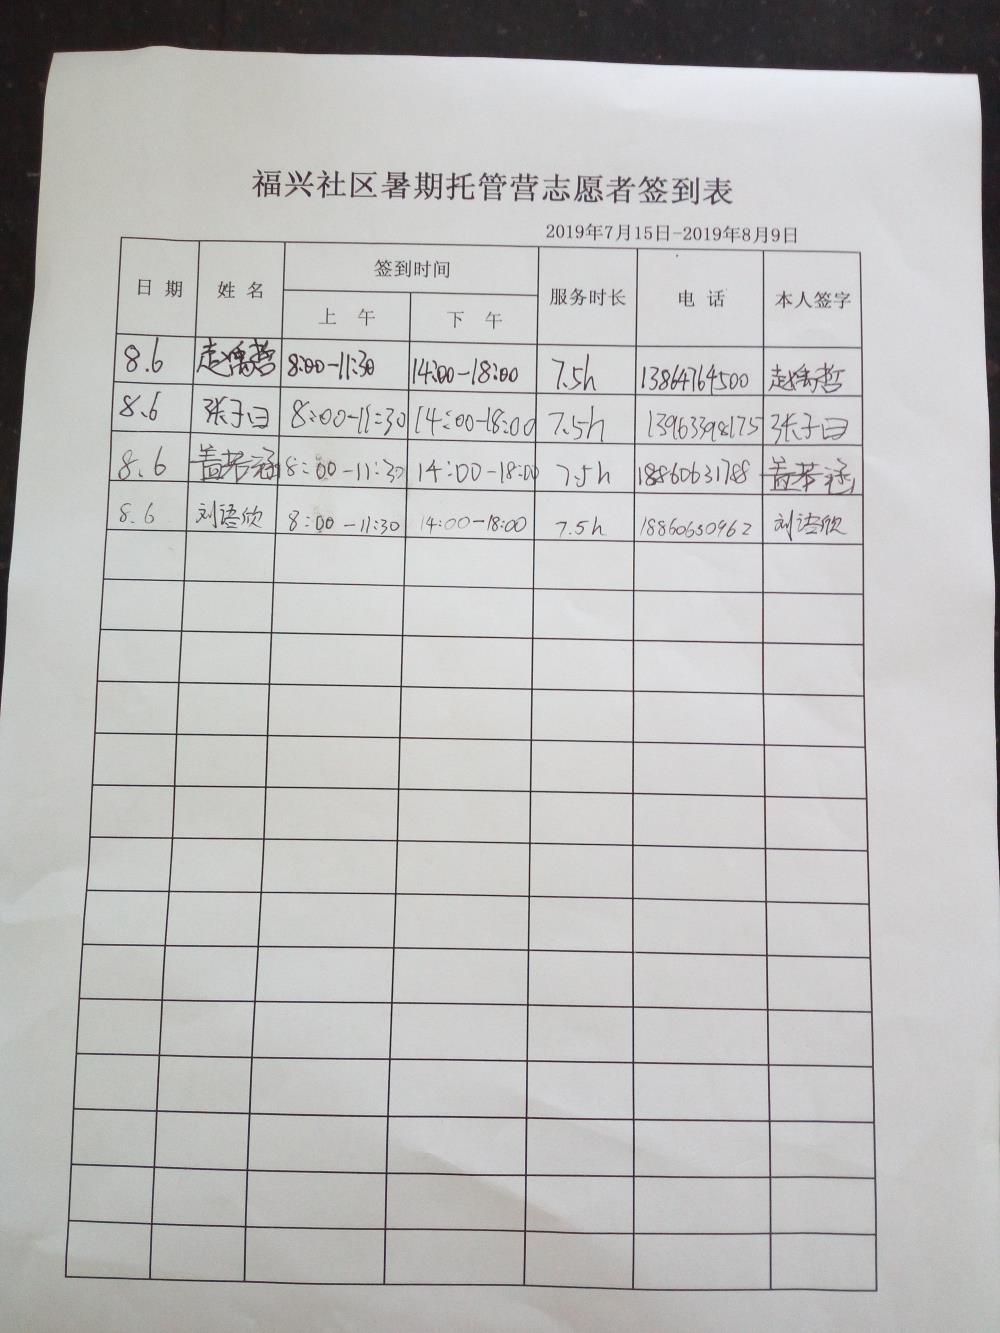 福兴社区暑期托管营志愿者签到表
2019年7月15日-2019年8月9日
日 期 姓 名 签到时间 服务时长 电 话 本人签字
上 午 下 午
8.6 赵禹哲 8:00-11:30 14:00-18:00 7.5h 13864764500 赵禹哲
8.6 张子曰 8:00-11:30 14:00-18:00 7.5h 13963398175 张子曰
8.6 盖若涵 8:00-11:30 14:00-18:00 7.5h 18860631788 盖若涵
8.6 刘语欣 8:00-11:30 14:00-18:00 7.5h 18860650962 刘语欣